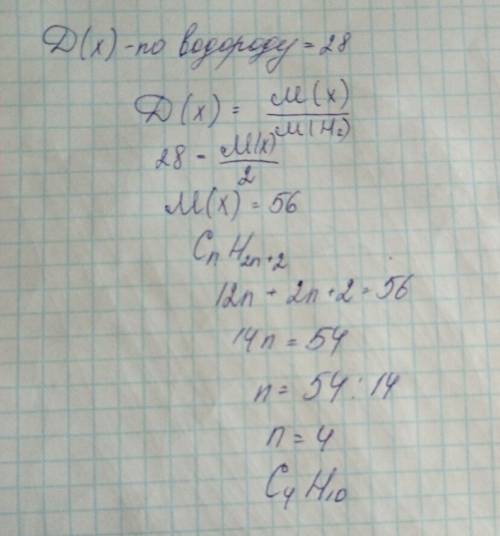 D(x) - по водороду = 28
D(x) = M(x) / M(H₂)
28 = M(x) / 2
M(x) = 56
CₙH₂ₙ₊₂
12n + 2n + 2 = 56
14n = 54
n = 54 : 14
n = 4
C₄H₁₀